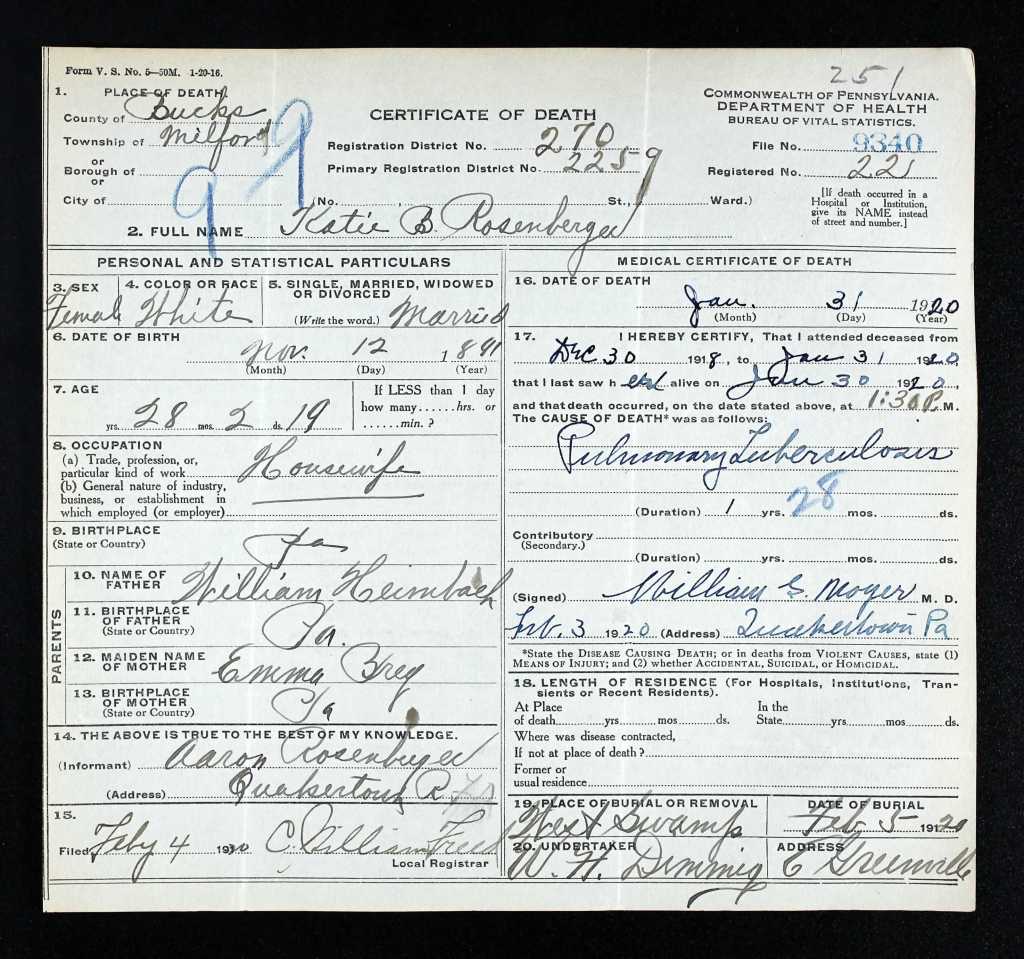 Form V. S. No. 5—50M. 1-20-16.
251
1. PLACE OF DEATH
County of Bucks
Township of Milford
or
Borough of
or
City of
99
CERTIFICATE OF DEATH
Registration District No. 270
Primary Registration District No. 2259
(No. , St., Ward.)
COMMONWEALTH OF PENNSYLVANIA.
DEPARTMENT OF HEALTH
BUREAU OF VITAL STATISTICS.
File No. 9340
Registered No. 22
[If death occurred in a
Hospital or Institution,
give its NAME instead
of street and number.]
2. FULL NAME Katie B. Rosenberger
PERSONAL AND STATISTICAL PARTICULARS
3. SEX
Female
4. COLOR OR RACE
White
5. SINGLE, MARRIED, WIDOWED
OR DIVORCED
(Write the word.) Married
6. DATE OF BIRTH
Nov. 12 1891
(Month) (Day) (Year)
7. AGE
28 yrs. 2 mos. 19 ds.
If LESS than 1 day
how many......hrs. or
......min. ?
8. OCCUPATION
(a) Trade, profession, or,
particular kind of work Housewife
(b) General nature of industry,
business, or establishment in
which employed (or employer)
9. BIRTHPLACE
(State or Country)
Pa
PARENTS
10. NAME OF
FATHER
William Heimbach
11. BIRTHPLACE
OF FATHER
(State or Country)
Pa.
12. MAIDEN NAME
OF MOTHER
Emma Brey
13. BIRTHPLACE
OF MOTHER
(State or Country)
Pa
14. THE ABOVE IS TRUE TO THE BEST OF MY KNOWLEDGE.
(Informant) Aaron Rosenberger
(Address) Quakertown R.
15.
Filed Feby 4 1920 C. William Freed
Local Registrar
MEDICAL CERTIFICATE OF DEATH
16. DATE OF DEATH
Jan. 31 1920
(Month) (Day) (Year)
17. I HEREBY CERTIFY, That I attended deceased from
Dec 30 1918, to Jan 31 1920,
that I last saw her alive on Jan 30 1920,
and that death occurred, on the date stated above, at 1:30 P. M.
The CAUSE OF DEATH* was as follows:
Pulmonary Tuberculosis
28
(Duration) 1 yrs. mos. ds.
Contributory
(Secondary.)
(Duration) yrs. mos. ds.
(Signed) William G. Moyer M. D.
Feb. 3 1920 (Address) Quakertown Pa
*State the DISEASE CAUSING DEATH; or in deaths from VIOLENT CAUSES, state (1)
MEANS OF INJURY; and (2) whether ACCIDENTAL, SUICIDAL, or HOMICIDAL.
18. LENGTH OF RESIDENCE (For Hospitals, Institutions, Tran-
sients or Recent Residents).
At Place
of death yrs mos ds.
In the
State yrs mos ds.
Where was disease contracted,
If not at place of death?
Former or
usual residence
19. PLACE OF BURIAL OR REMOVAL
West Swamp
DATE OF BURIAL
Feb 5 1920
20. UNDERTAKER
W. H. Dimmig
ADDRESS
E Greenville